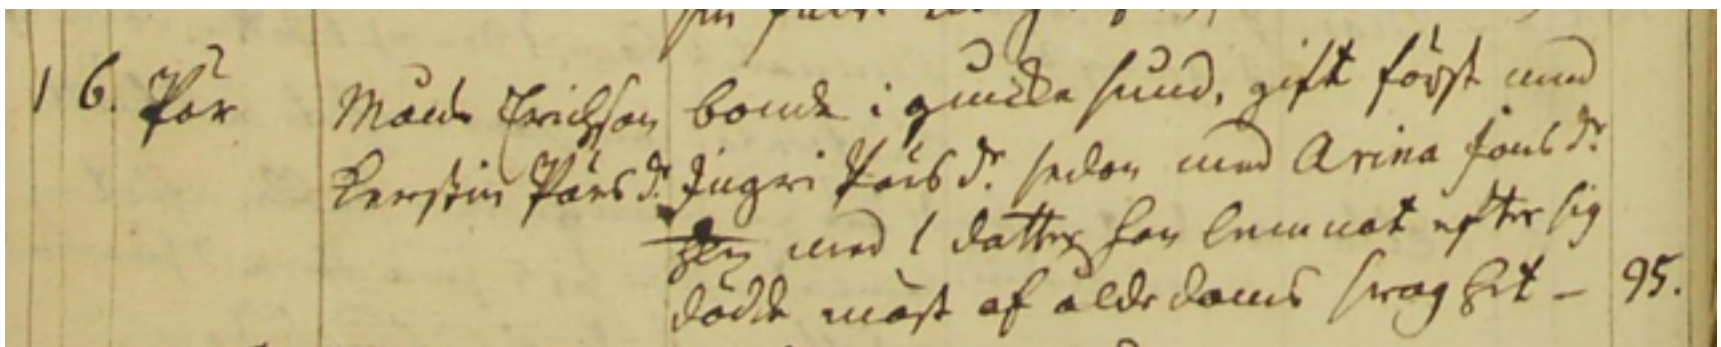 1 6. Pär Måns Erichson bonde i quickesund, gift först med
Kerstin Pärs dr. Ingri Pärs dr. sedan med Arina Jons dr.
med 1 dotter han lemnat efter sig
dödde mäst af ålderdoms swaghet – 95.